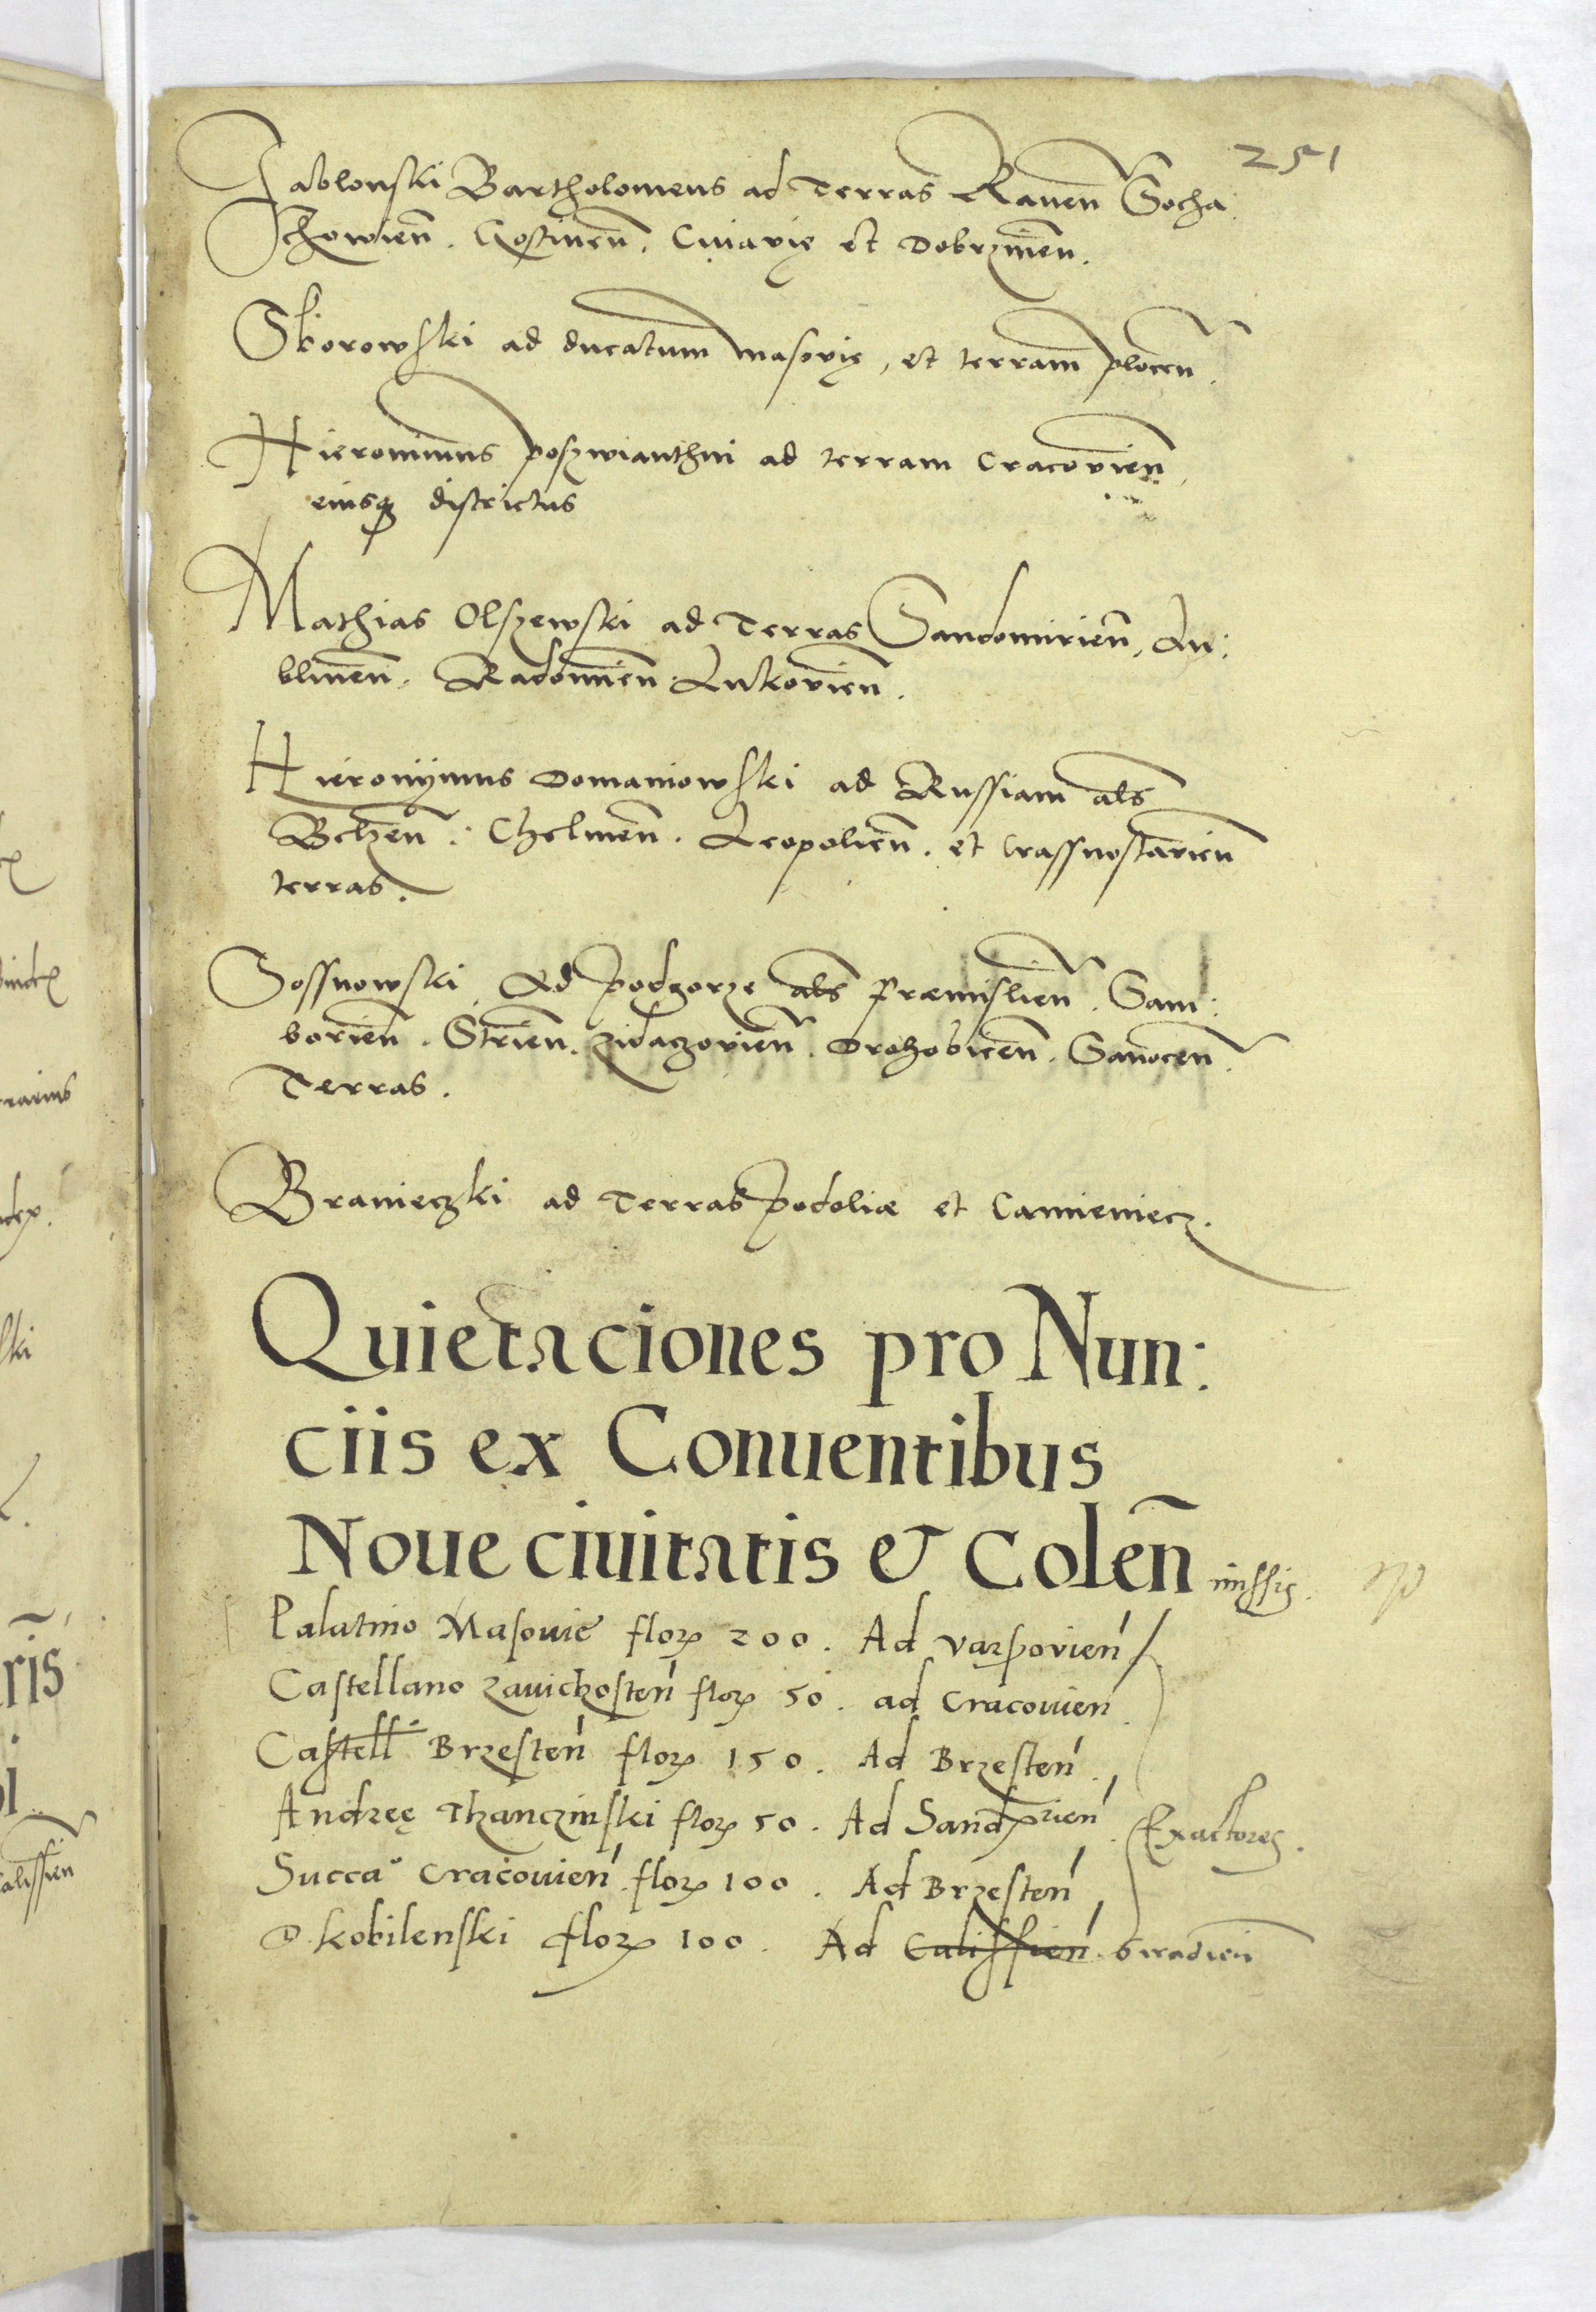 251
Jablonski Bartholomeus ad Terras Rauen̄ Socha:
Schowien̄. Gostinen̄. Cuiavię et Dobrzinen̄.
Skorowski ad ducatum masovię, et terram plocen̄.
Hieronimus poszwianthni ad terram Cracovien̄.
eiusq districtus
Mathias Olszewski ad Terras Sandomirien̄, Lu:
blinen̄. Radomien̄. Lukovien̄.
Hieronÿmus Domaniowski ad Russiam als
Belzen̄. Chelmen̄. Leopolien̄. et Crassnostavien̄
terras.
Sossnowski Ad podgorze als Præmislien̄. Sam:
borien̄. Strien̄. Zidaczovien̄. Drohobicen̄. Sanocen̄.
Terras.
Branieczki ad Terras podoliæ et Camieniecz.
Quietaciones pro Nun:
ciis ex Conuentibus
Noue ciuitatis & Colen̄ missis.
Palatino Masouie flor 200. Ad varsovien̄
Castellano zauichosten̄ flor 50. ad Cracouien̄
Castell Brzesten̄ flor 150. Ad Brzesten̄.
Andreę Thanczinski flor 50. Ad Sandorien̄. Exactores.
Succa Cracouien̄ flor 100. Ad Brzesten̄
D. kobilenski flor 100. Ad Calissien̄. Siradien̄